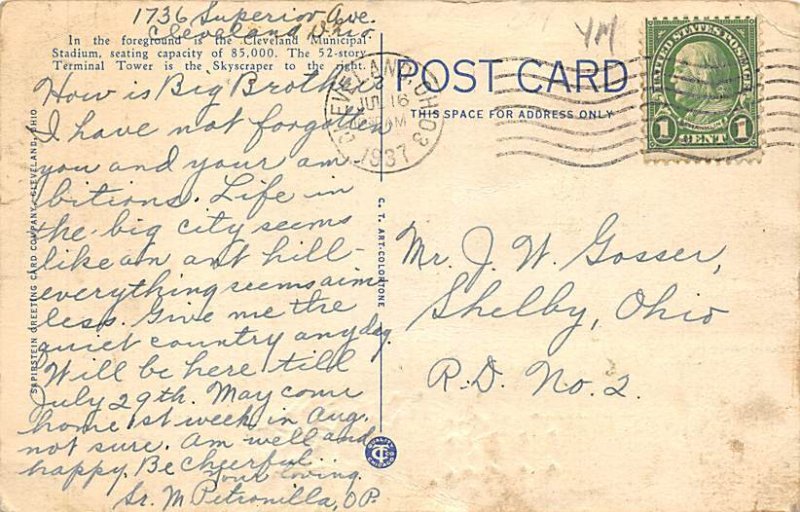 1736 Superior Ave.
Cleveland Ohio.
In the foreground is the Cleveland Municipal
Stadium, seating capacity of 85,000. The 52-story
Terminal Tower is the Skyscraper to the right.
How is Big Brother?
I have not forgotten
you and your am
bitions. Life in
the big city seems
like an ant hill-
everything seems aim
less. Give me the
quiet country any day.
Will be here till
July 29th. May come
home 1st week in Aug.
not sure. Am well and
happy. Be Cheerful.
Your loving.
Sr. M Petronilla, OP.
SAPIRSTEIN GREETING CARD COMPANY, CLEVELAND, OHIO
C. T. ART-COLORTONE
QUALITY
CT CO
CHICAGO
POST CARD
THIS SPACE FOR ADDRESS ONLY
CLEVELAND, OHIO
JUL 16
AM
1937
YM
UNITED STATES POSTAGE
1 CENT 1
Mr. J. W. Gosser,
Shelby, Ohio
R.D. No. 2.